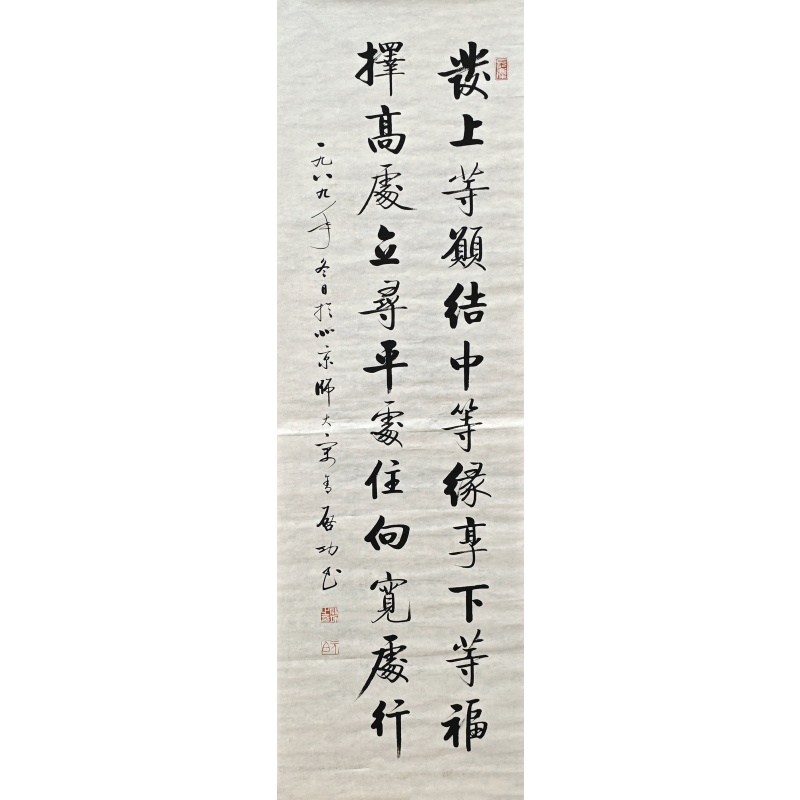 發上等願結中等緣享下等福
擇高處立尋平處住向寬處行
一九八九年冬日於北京師大寓舍启功書